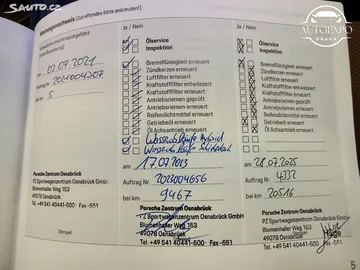 SAUTO.CZ
AUTOEXPO
PRAHA
Wartungsnachweis (Zutreffendes bitte ankreuzen!)
am 02.07.2021
Auftrag Nr.
5
Ja / Nein
Ölservice
Inspektion
Bremsflüssigkeit erneuert
Zündkerzen erneuert
Luftfilter erneuert
Kraftstofffilter entwässert
Kraftstofffilter erneuert
Antriebsriemen geprüft
Antriebsriemen erneuert
Reifendichtmittel erneuert
Getriebeöl erneuert
Öl Achsantrieb erneuert
am 17.07.2023
Auftrag Nr. 2023004656
bei km 9467
Porsche Zentrum Osnabrück
PZ Sportwagenzentrum Osnabrück GmbH
Blumenhaller Weg 153
49078 Osnabrück
Tel. +49 541 40441-500 · Fax -551
Ja / Nein
Ölservice
Inspektion
Bremsflüssigkeit erneuert
Zündkerzen erneuert
Luftfilter erneuert
Kraftstofffilter entwässert
Kraftstofffilter erneuert
Antriebsriemen geprüft
Antriebsriemen erneuert
Reifendichtmittel erneuert
Getriebeöl erneuert
Öl Achsantrieb erneuert
am 28.07.2025
Auftrag Nr. 4332
bei km 20516
Porsche Zentrum Osnabrück
PZ Sportwagenzentrum Osnabrück GmbH
Blumenhaller Weg 153
49078 Osnabrück
Tel. +49 541 40441-500 · Fax -551
Porsche Zentrum Osnabrück
PZ Sportwagenzentrum Osnabrück GmbH
Blumenhaller Weg 153
49078 Osnabrück
Tel. +49 541 40441-500 · Fax -551
Stempel
5